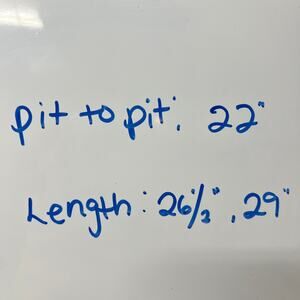 pit to pit: 22"
Length: 26 1/2", 29"